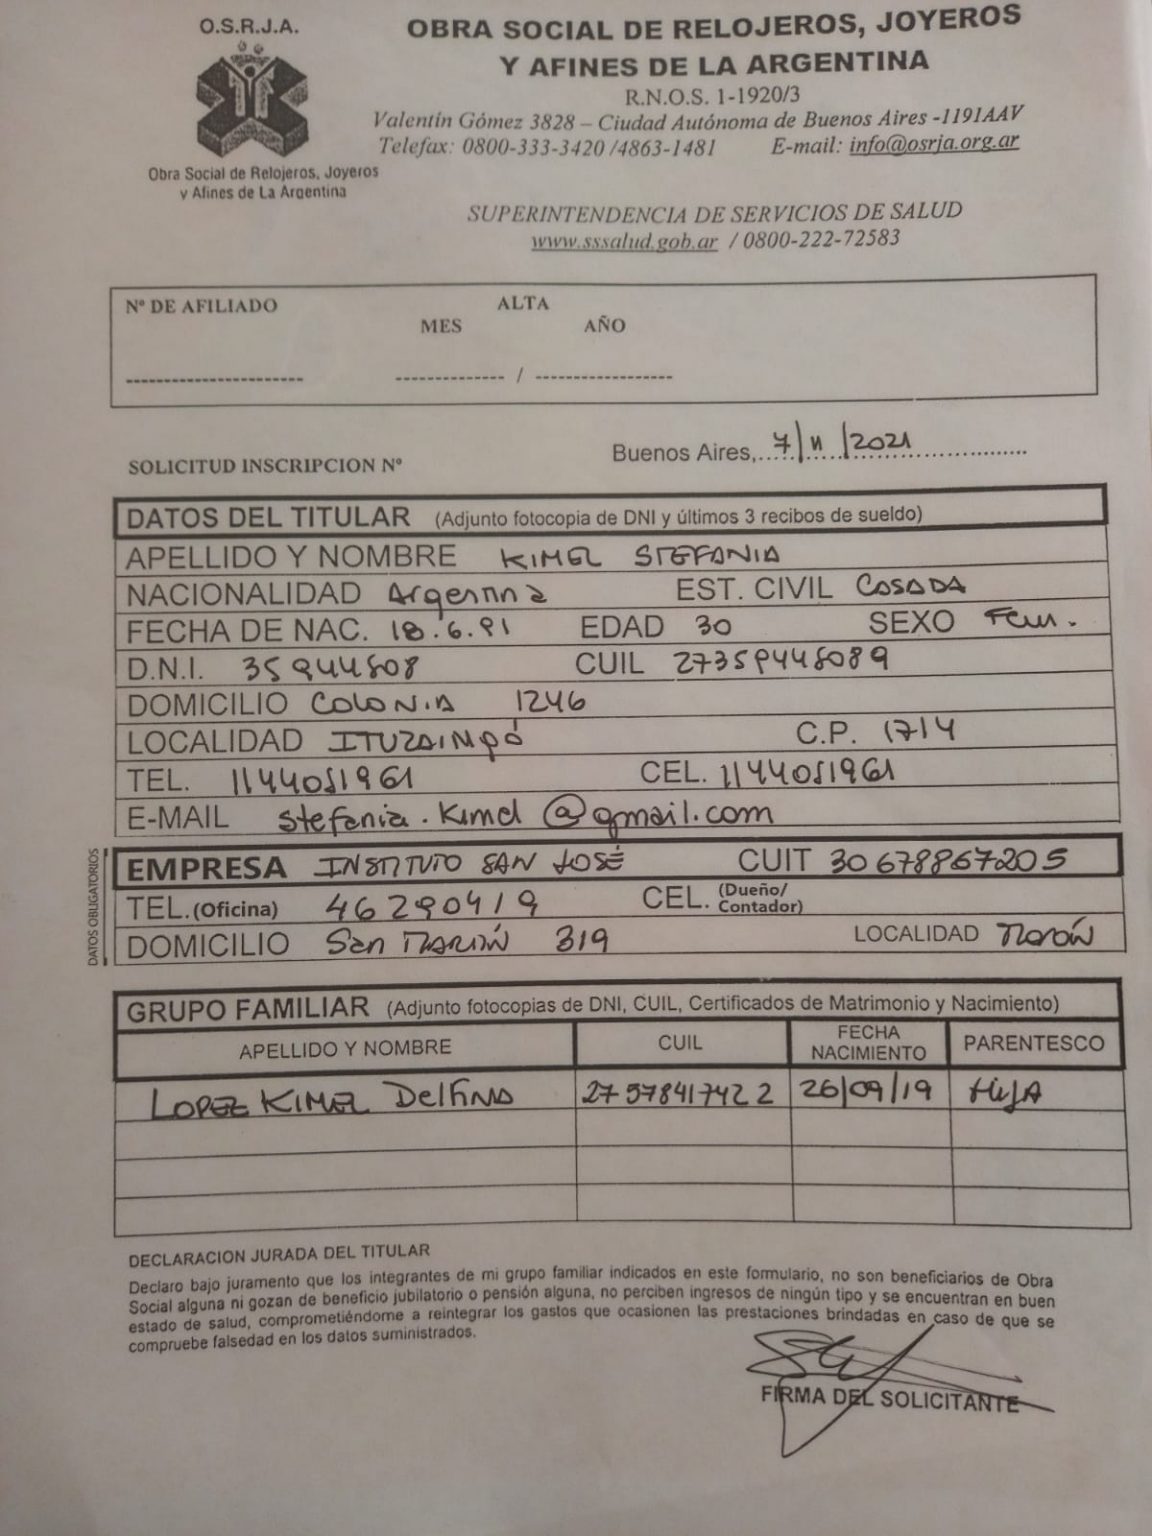 O.S.R.J.A.
Obra Social de Relojeros, Joyeros
y Afines de La Argentina
OBRA SOCIAL DE RELOJEROS, JOYEROS
Y AFINES DE LA ARGENTINA
R.N.O.S. 1-1920/3
Valentín Gómez 3828 – Ciudad Autónoma de Buenos Aires -1191AAV
Telefax: 0800-333-3420 /4863-1481 E-mail: info@osrja.org.ar
SUPERINTENDENCIA DE SERVICIOS DE SALUD
www.sssalud.gob.ar / 0800-222-72583
Nº DE AFILIADO ALTA
MES AÑO
----------------------- -------------- / -----------------
Buenos Aires, 7/11/2021
SOLICITUD INSCRIPCION Nº
DATOS DEL TITULAR (Adjunto fotocopia de DNI y últimos 3 recibos de sueldo)
APELLIDO Y NOMBRE KIMEL STEFANIA
NACIONALIDAD Argentina EST. CIVIL CASADA
FECHA DE NAC. 18.6.91 EDAD 30 SEXO Fem.
D.N.I. 35944808 CUIL 27359448089
DOMICILIO COLONIA 1246
LOCALIDAD ITUZAINGÓ C.P. 1714
TEL. 1144051961 CEL. 1144051961
E-MAIL stefania.kimel@gmail.com
DATOS OBLIGATORIOS
EMPRESA INSTITUTO SAN JOSÉ CUIT 30678867205
TEL.(Oficina) 46290419 CEL. (Dueño/
Contador)
DOMICILIO San MARTÍN 319 LOCALIDAD MORÓN
GRUPO FAMILIAR (Adjunto fotocopias de DNI, CUIL, Certificados de Matrimonio y Nacimiento)
APELLIDO Y NOMBRE CUIL FECHA NACIMIENTO PARENTESCO
LOPEZ KIMEL Delfina 27578417422 26/09/19 HIJA
DECLARACION JURADA DEL TITULAR
Declaro bajo juramento que los integrantes de mi grupo familiar indicados en este formulario, no son beneficiarios de Obra
Social alguna ni gozan de beneficio jubilatorio o pensión alguna, no perciben ingresos de ningún tipo y se encuentran en buen
estado de salud, comprometiéndome a reintegrar los gastos que ocasionen las prestaciones brindadas en caso de que se
compruebe falsedad en los datos suministrados.
FIRMA DEL SOLICITANTE